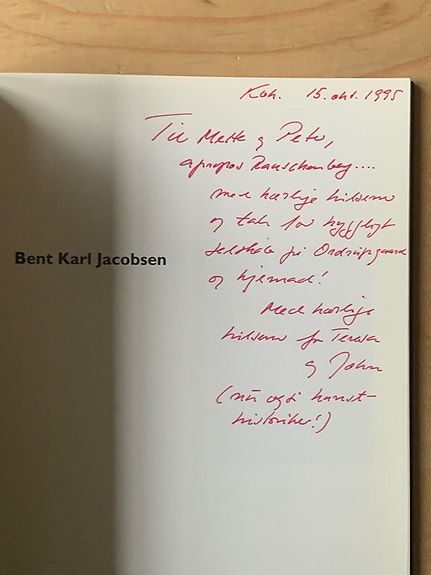 Kbh. 15. okt. 1995
Til Mette og Peter,
apropos Rauschenberg....
med kærlige hilsener
og tak for hyggeligt
selskab på Ordrupgaard
og hjemad!
Bent Karl Jacobsen
Med kærlige
hilsener fra Teresa
og John
(nu også kunst-
historiker!)